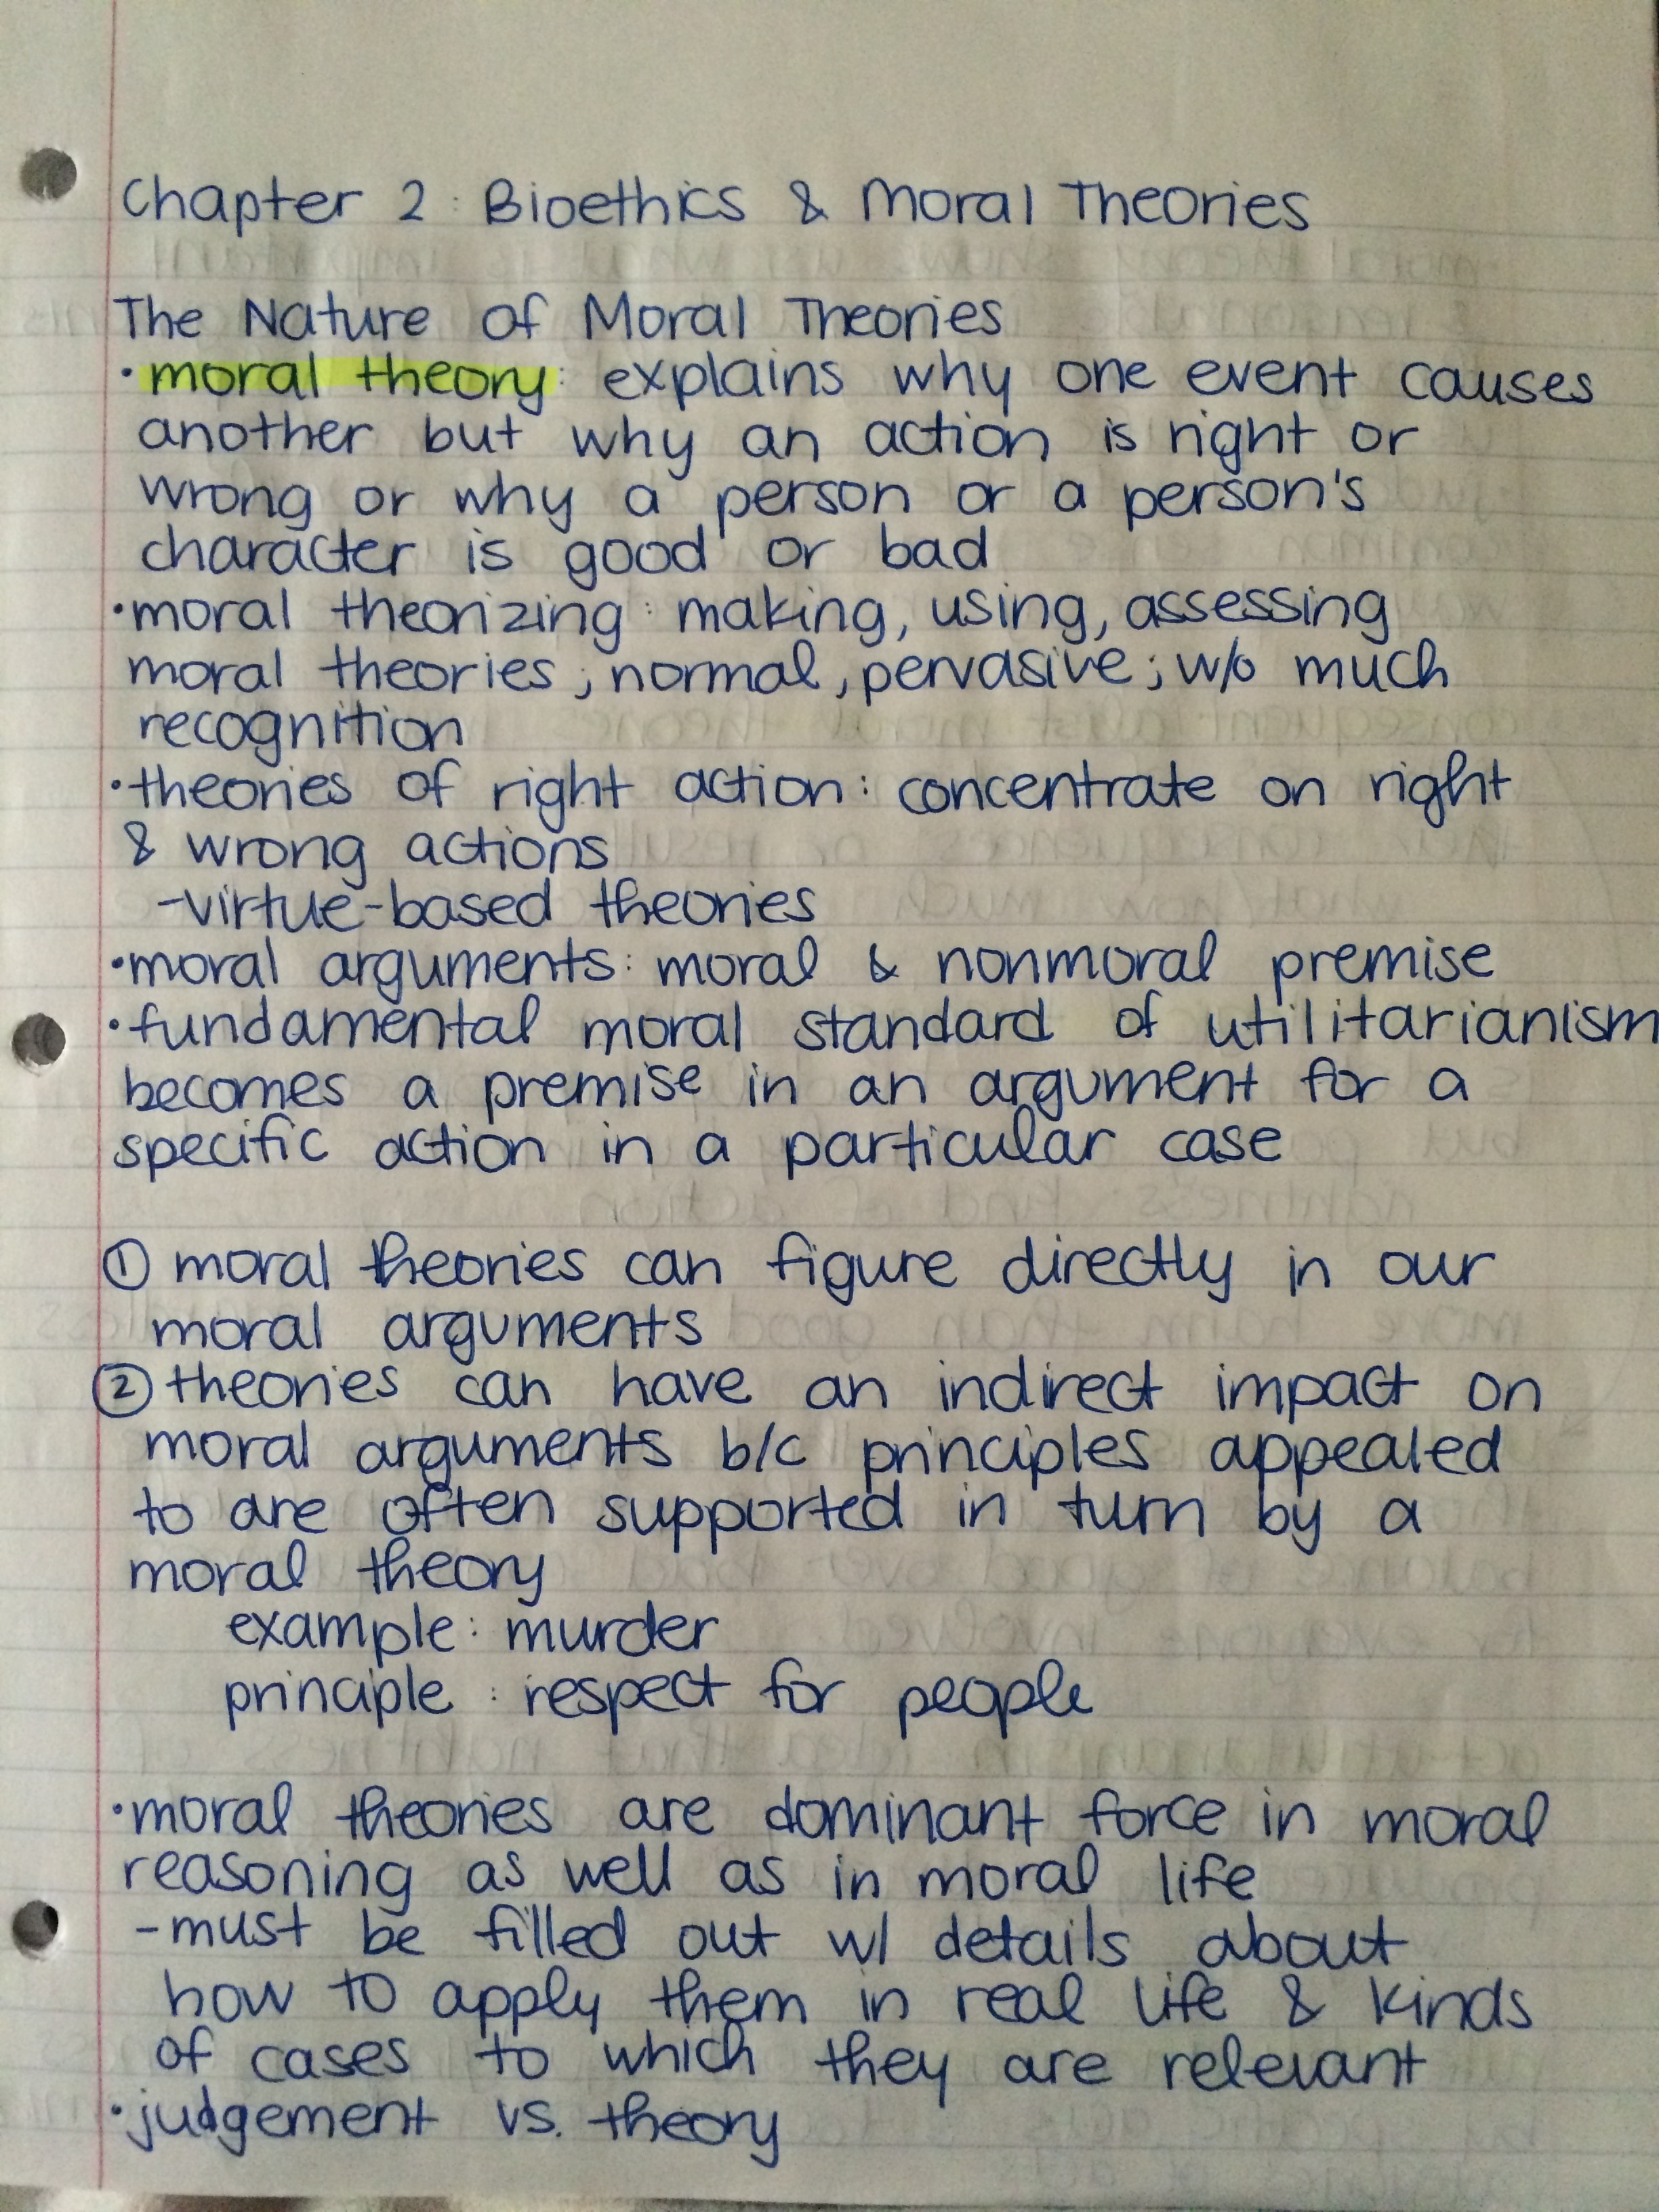 Chapter 2: Bioethics & Moral Theories
The Nature of Moral Theories
• moral theory: explains why one event causes
another but why an action is right or
wrong or why a person or a person's
character is good or bad
• moral theorizing: making, using, assessing
moral theories; normal, pervasive; w/o much
recognition
• theories of right action: concentrate on right
& wrong actions
- virtue-based theories
• moral arguments: moral & nonmoral premise
• fundamental moral standard of utilitarianism
becomes a premise in an argument for a
specific action in a particular case
① moral theories can figure directly in our
moral arguments
② theories can have an indirect impact on
moral arguments b/c principles appealed
to are often supported in turn by a
moral theory
example: murder
principle: respect for people
• moral theories are dominant force in moral
reasoning as well as in moral life
- must be filled out w/ details about
how to apply them in real life & kinds
of cases to which they are relevant
• judgement vs. theory